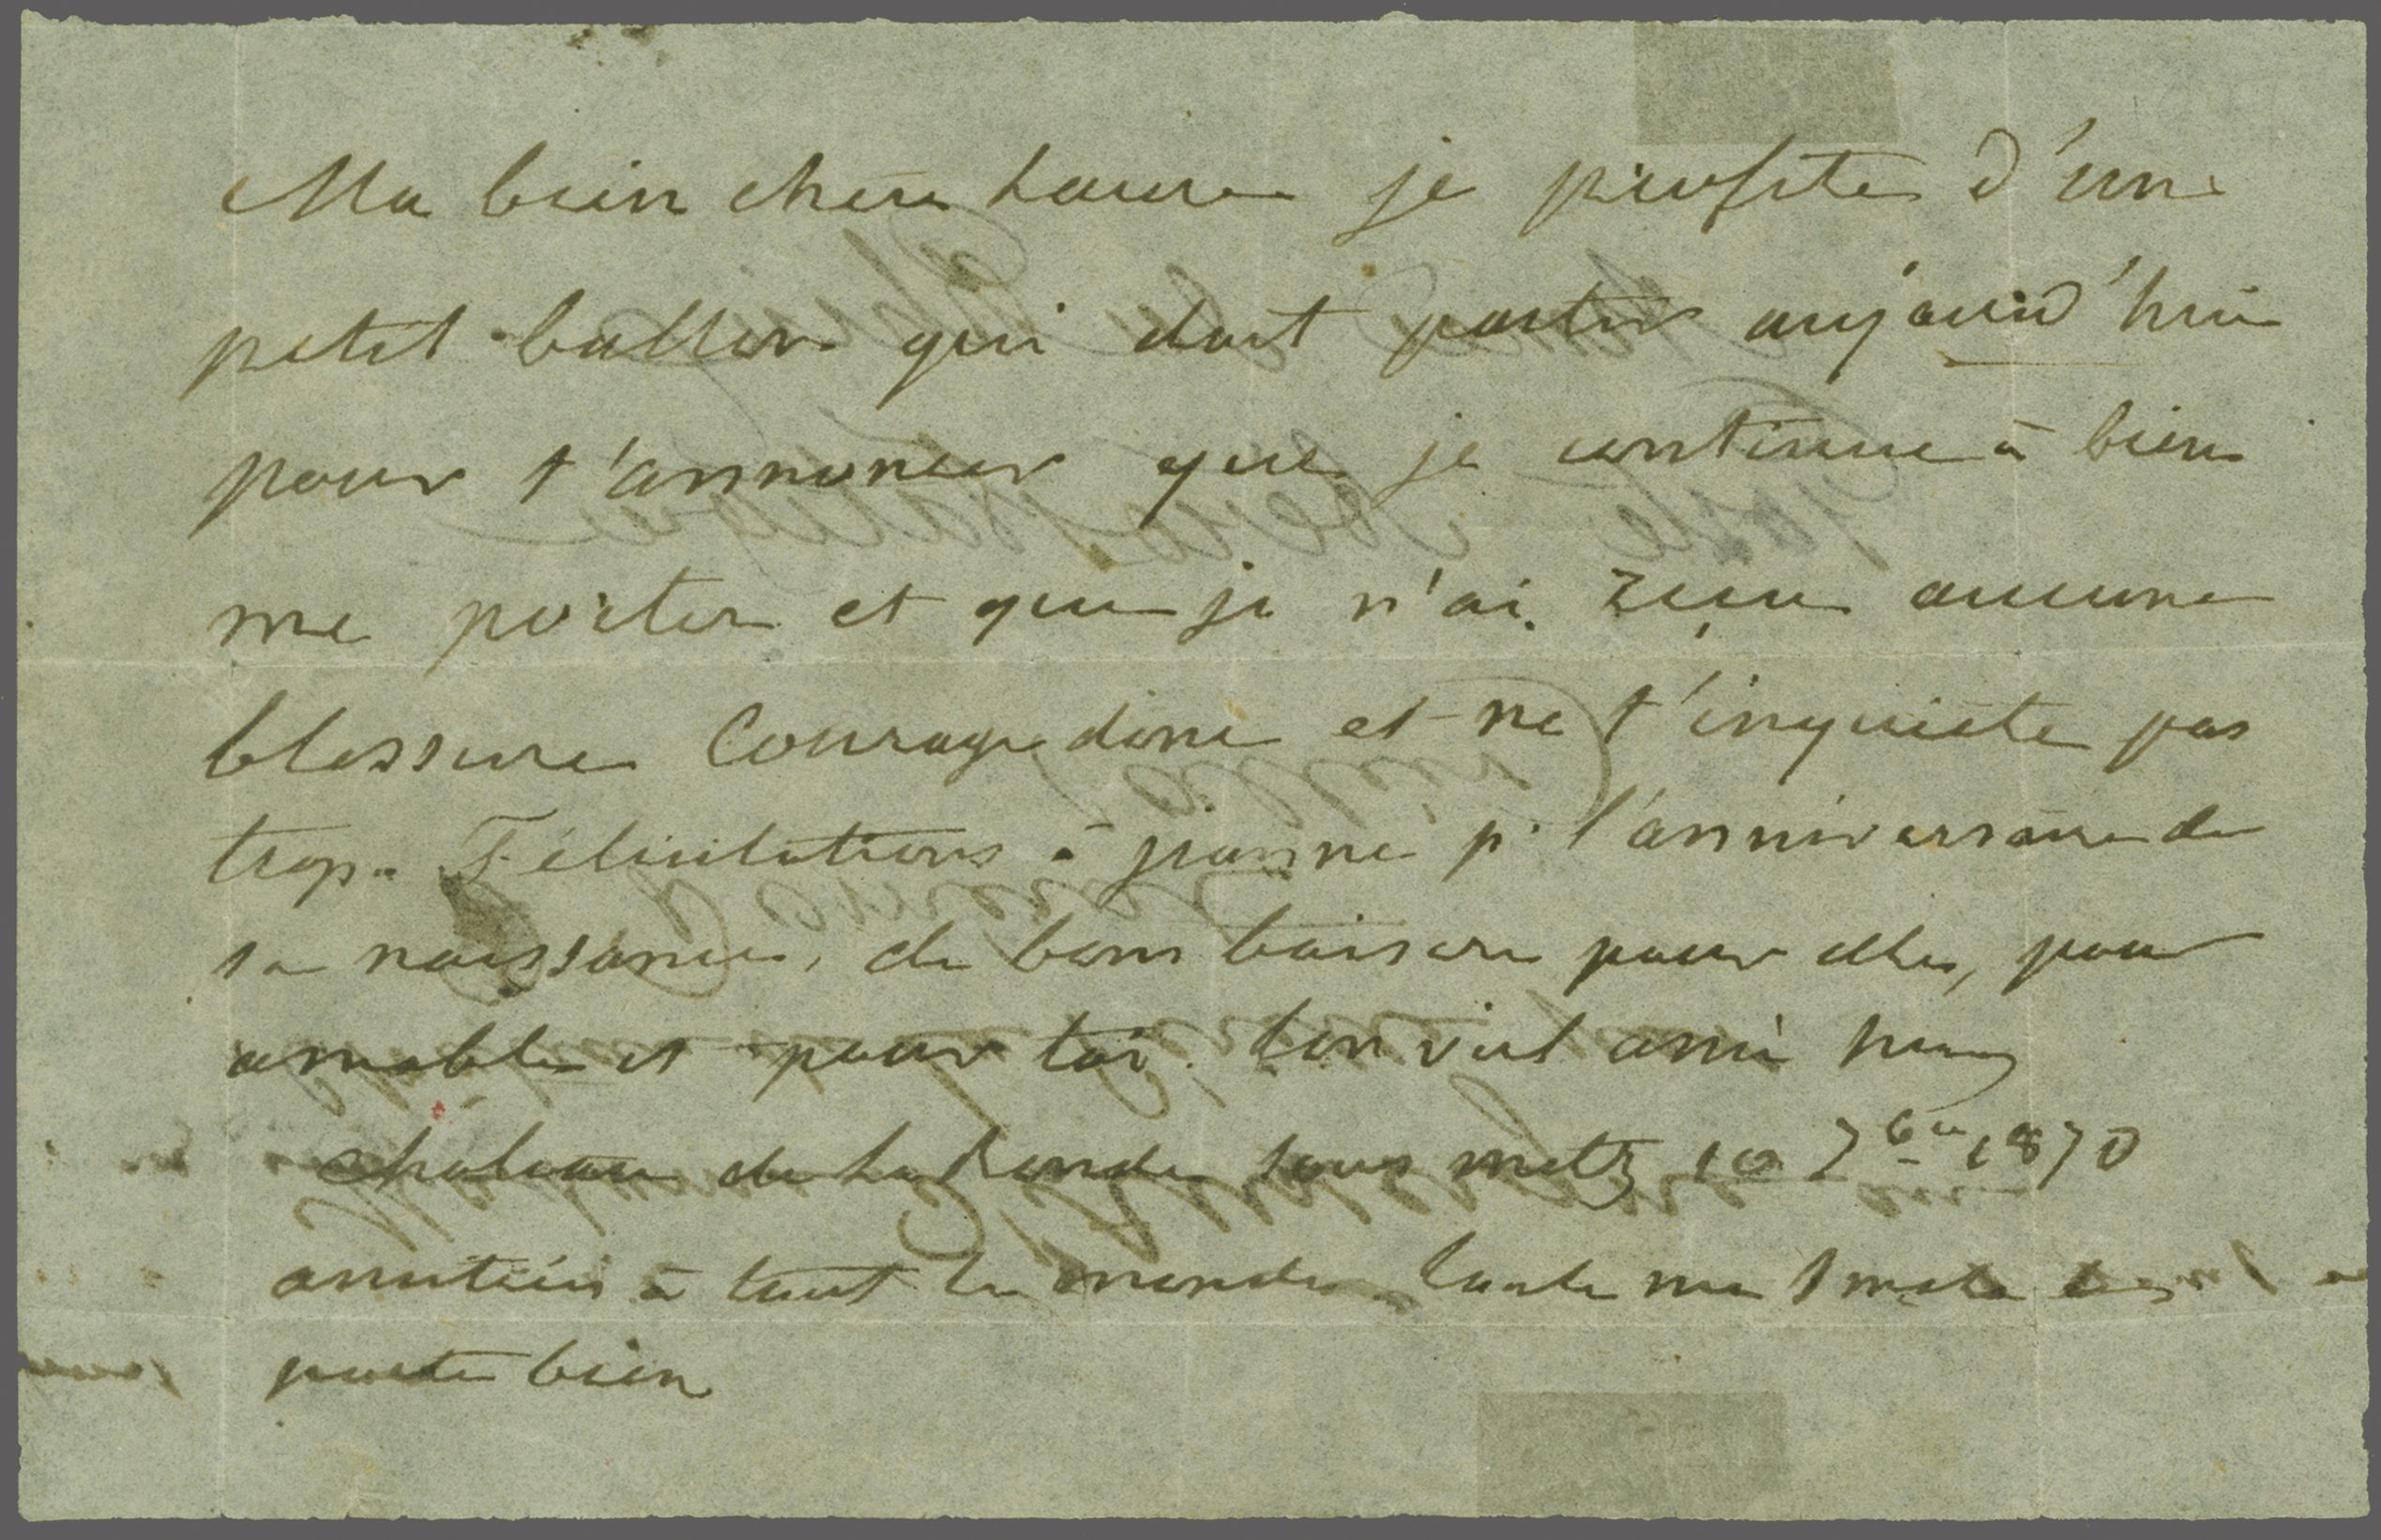 Ma bien chère Laure je profite d'un
petit ballon qui doit partir aujourd'hui
pour t'annoncer que je continue à bien
me porter et que je n'ai reçu aucune
blessure Courage donc et ne t'inquiète pas
trop. Félicitations à jeanne p. l'anniversaire de
sa naissance, de bons baisers pour elle, pour
amable et pour toi. ton viel ami
château de La Ronde sous metz 10 7bre 1870
amitiés à tout le monde
porte bien